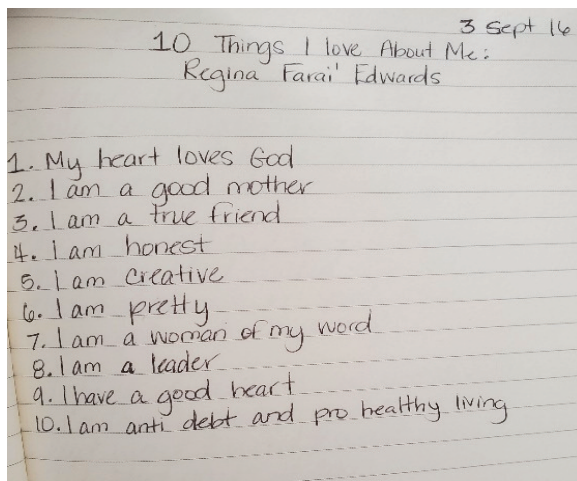 3 Sept 16
10 Things I love About Me:
Regina Farai' Edwards
1. My heart loves God
2. I am a good mother
3. I am a true friend
4. I am honest
5. I am creative
6. I am pretty
7. I am a woman of my word
8. I am a leader
9. I have a good heart
10. I am anti debt and pro healthy living